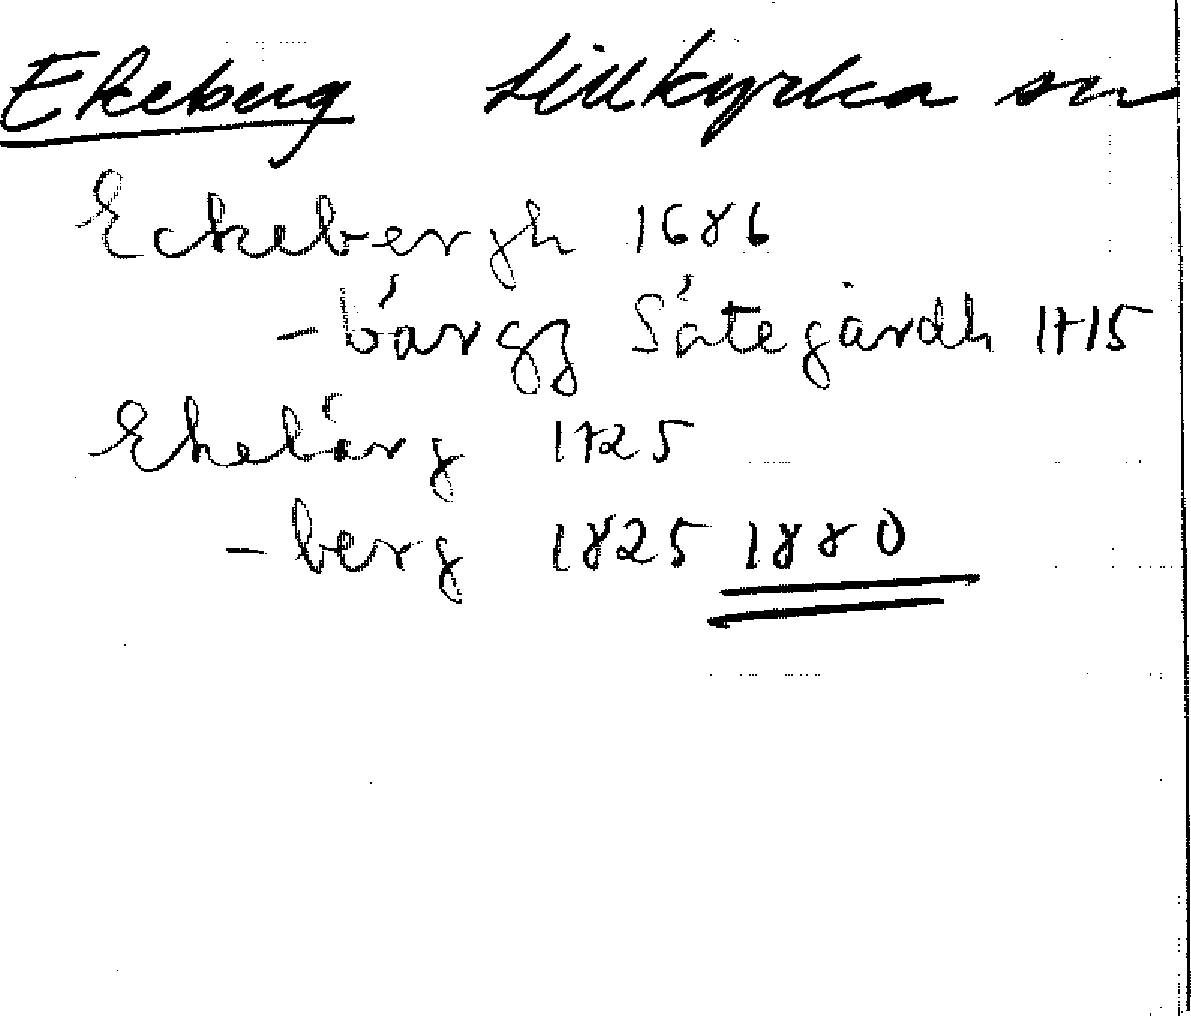 Ekeberg Lillkyrka sn
Eckebergh 1686
-bärgz Sätegårdh 1715
Ekebärg 1725
-berg 1825 1880